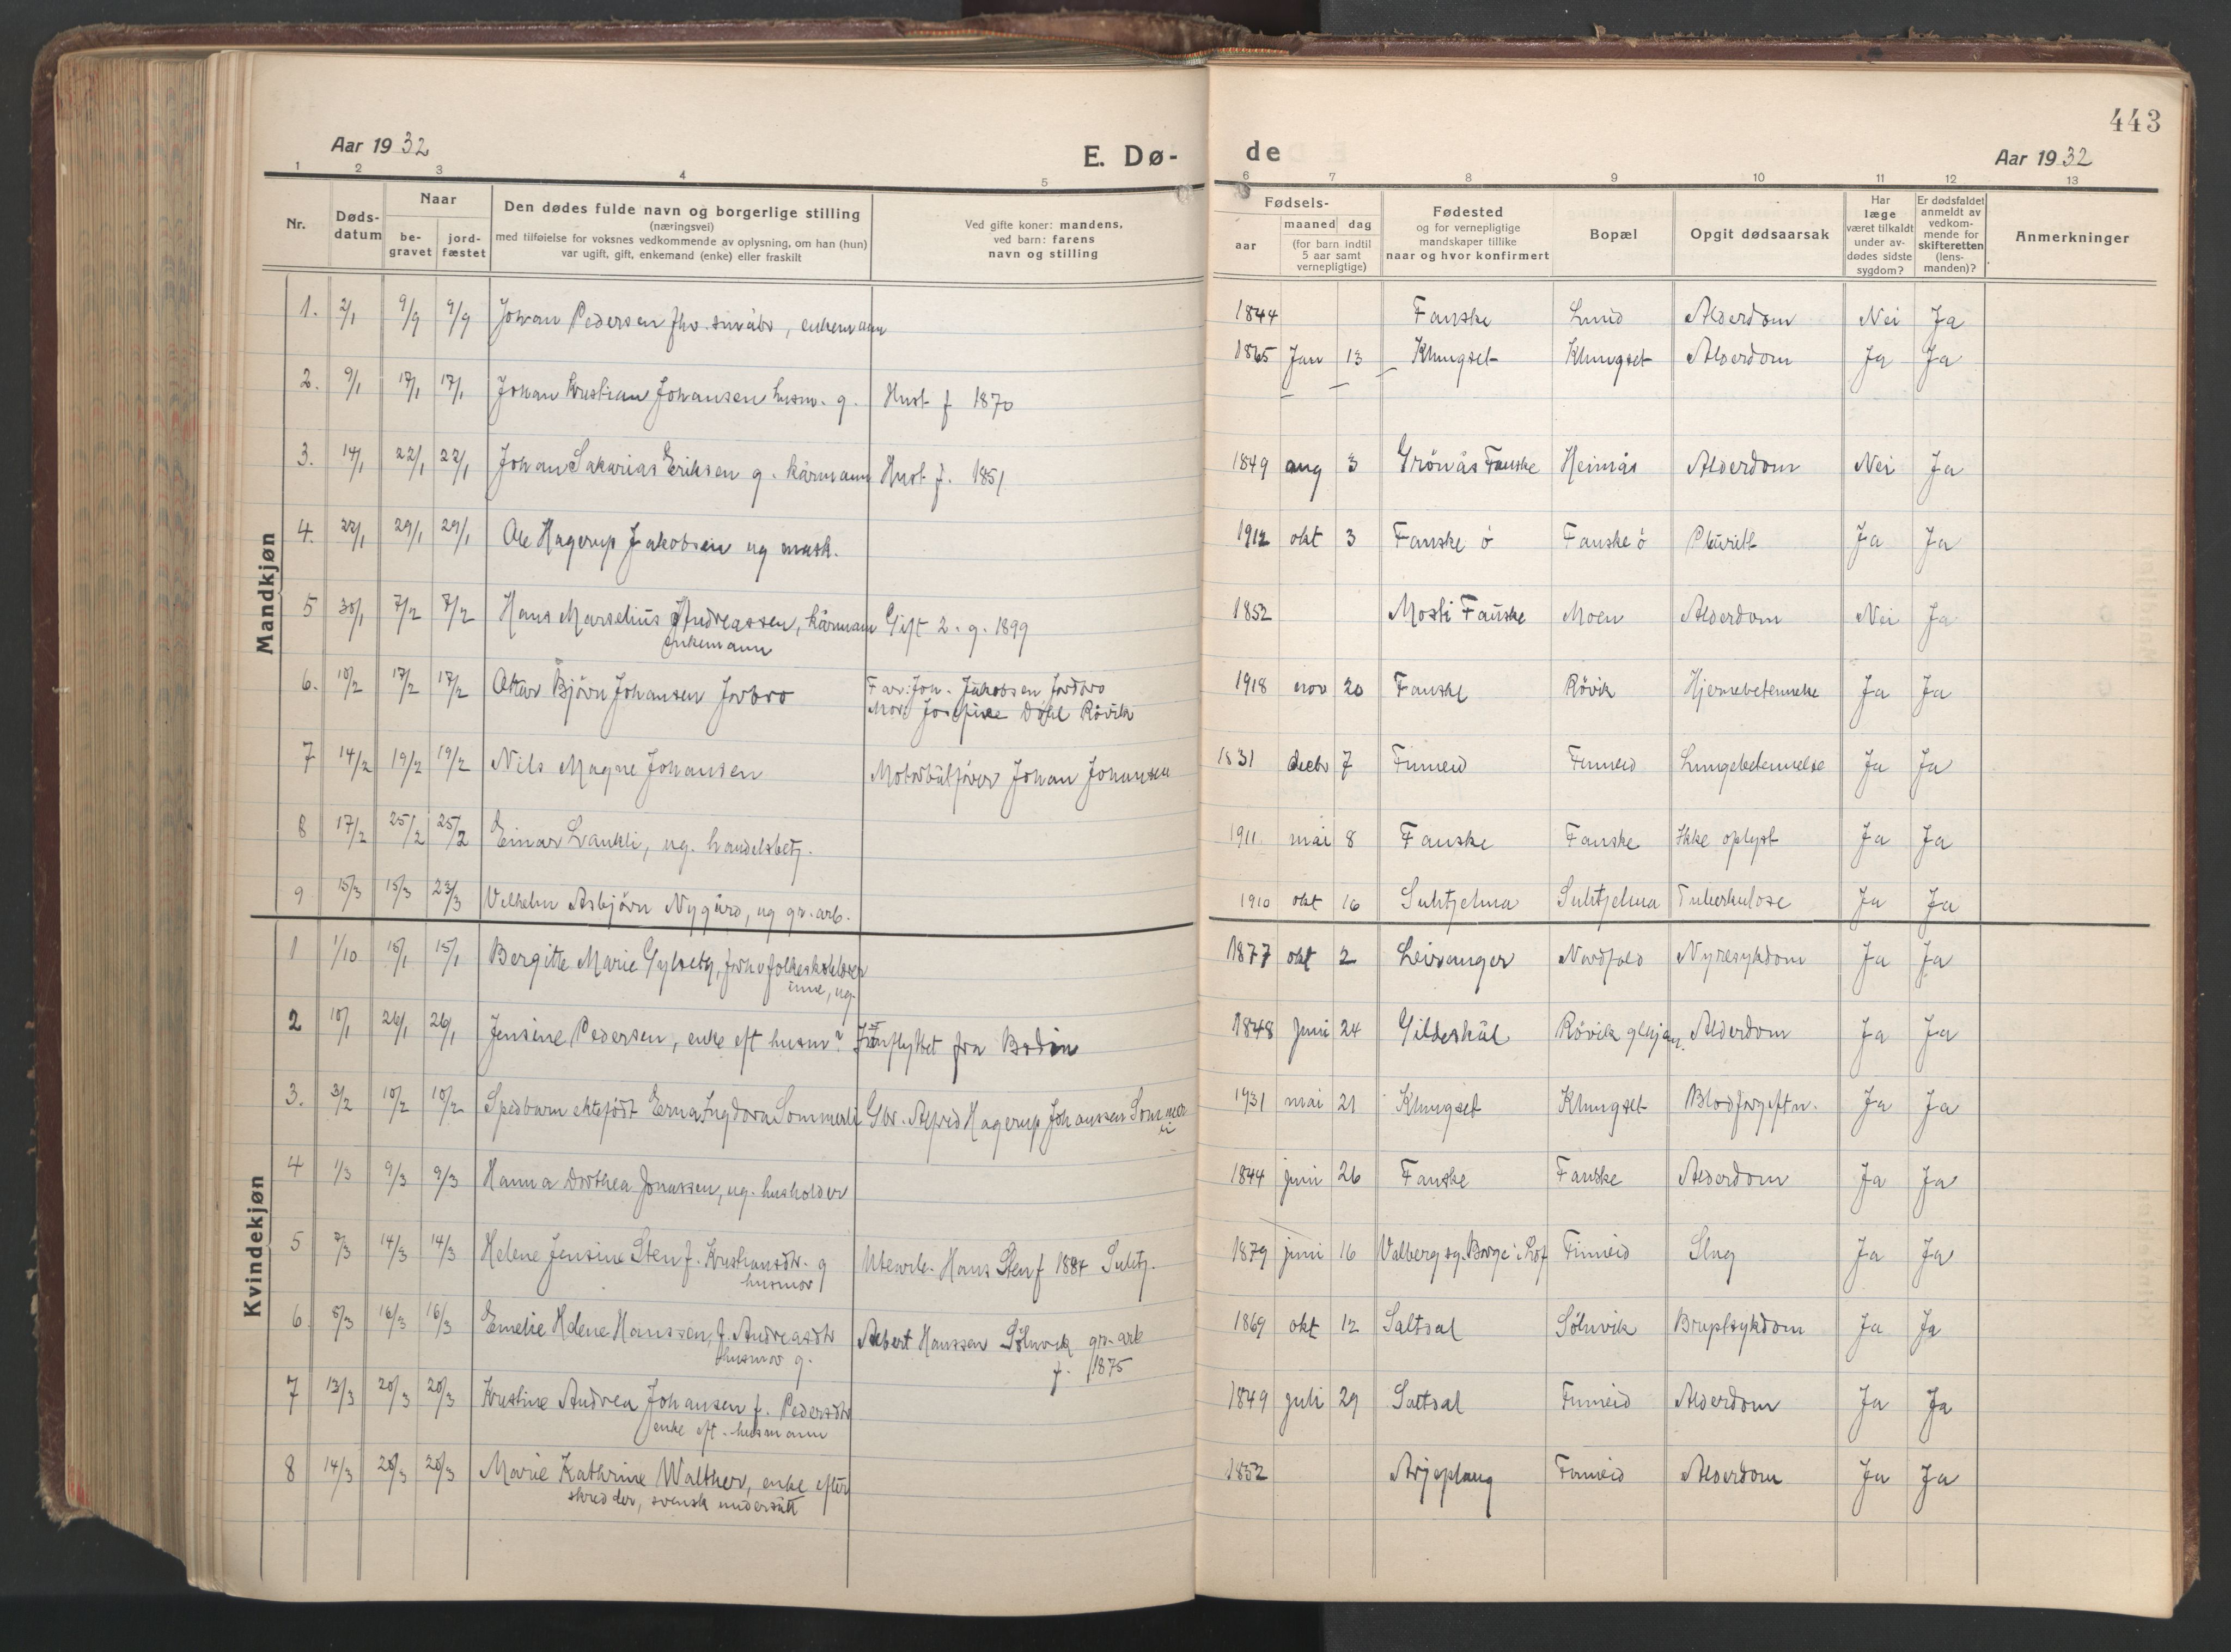 443
Aar 1932
E. Dø-
de
Aar 1932
1 2 3 4 5 6 7 8 9 10 11 12 13
Nr.
Døds-
datum
Naar
be-
gravet
jord-
fæstet
Den dødes fulde navn og borgerlige stilling
(næringsvei)
med tilføielse for voksnes vedkommende av oplysning, om han (hun)
var ugift, gift, enkemand (enke) eller fraskilt
Ved gifte koner: mandens,
ved barn: farens
navn og stilling
Fødsels-
aar
maaned dag
(for barn indtil
5 aar samt
vernepligtige)
Fødested
og for vernepligtige
mandskaper tillike
naar og hvor konfirmert
Bopæl
Opgit dødsaarsak
Har
læge
været tilkaldt
under av-
dødes sidste
sygdom?
Er dødsfaldet
anmeldt av
vedkom-
mende for
skifteretten
(lens-
manden)?
Anmerkninger
Mandkjøn
1. 2/1 9/9 9/9 Johan Pedersen fhv. småbr, enkemann 1844 Fauske Lund Alderdom Nei Ja
2. 9/1 17/1 17/1 Johan Kristian Johansen husm. g. Hust f 1870 1865 Jan 13 Klungset Klungset Alderdom Ja Ja
3. 14/1 22/1 22/1 Johan Sakarias Eriksen g. kårmann Hust f. 1851 1849 aug 3 Grönås Fauske Heimås Alderdom Nei Ja
4. 22/1 29/1 29/1 Ole Hagerup Jakobsen ug mask. 1912 okt 3 Fauske ö Fauske ö Pleuritt Ja Ja
5 30/1 7/2 7/2 Hans Marselius Andreassen, kårmann Gift 2. g. 1899 1852 Mosti Fauske Moen Alderdom Nei Ja
enkemann
6. 10/2 17/2 17/2 Ottar Björn Johansen Jordbro Far: Joh. Jakobsen Jordbro 1918 nov 20 Fauske Rövik Hjernebetennelse Ja Ja
Mor: Josefine Dahl Rövik
7 14/2 19/2 19/2 Nils Magne Johansen Motorbåtförer Johan Johansen 1831 decbr 7 Finneid Finneid Lungebetennelse Ja Ja
8 17/2 25/2 25/2 Einar Laukli, ug. handelsbetj. 1911 mai 8 Fauske Fauske Ikke oplyst Ja Ja
9 15/3 15/3 23/3 Vilhelm Asbjörn Nygård, ug gr. arb. 1910 okt 16 Sulitjelma Sulitjelma Tuberkulose Ja Ja
Kvindekjøn
1 1/10 15/1 15/1 Bergitte Marie Gylseth, forhv folkeskolelærer 1877 okt 2 Leirvanger Nordfold Nyresykdom Ja Ja
inne, ug.
2 10/1 26/1 26/1 Jensine Pedersen, enke eft husm? Innflyttet fra Bodin 1848 Juni 24 Gildeskål Rövik Alderdom Ja Ja
3. 3/2 10/2 10/2 Spedbarn ektefödt Erna Ingdora Sommerli Gbr. Alfred Hagerup Johanssen Sommer 1931 mai 21 Klungset Klungset Blodforgiftn. Ja Ja
li
4 1/3 9/3 9/3 Hanna Dorthea Jonassen, ug. husholder 1844 juni 26 Fauske Fauske Alderdom Ja Ja
5 7/3 14/3 14/3 Helene Jensine Sten f. Kristiansdtr. g Utearb. Hans Sten f 1884 Sulitj. 1879 juni 16 Valberg sg. Borge i Lof Finneid Slag Ja Ja
husmor
6. 8/3 16/3 16/3 Emelie Helene Hanssen, f. Andreasdtr Albert Hanssen Sölnvik gr. arb 1869 okt 12 Saltdal Sölnvik Brystsykdom Ja Ja
husmor g. f. 1875
7 13/3 20/3 20/3 Kristine Andrea Johansen f. Pedersdtr 1849 juli 29 Saltdal Finneid Alderdom Ja Ja
enke eft. husmann
8 14/3 20/3 20/3 Marie Kathrine Walther, enke efter 1852 Arjeplaug Finneid Alderdom Ja Ja
skredder, svensk undersått